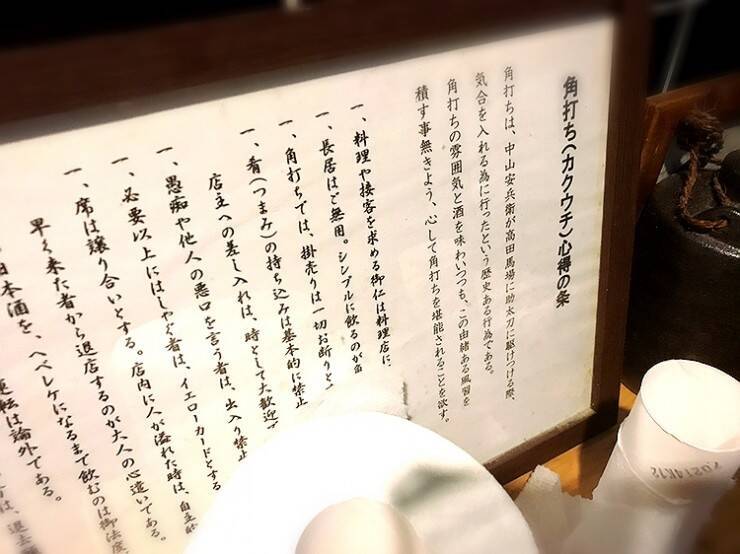 角打ち(カクウチ)心得の条
角打ちは、中山安兵衛が高田馬場に助太刀に駆けつける際、
気合を入れる為に行ったという歴史ある行為である。
角打ちの雰囲気と酒を味わいつつも、この由緒ある風習を
積す事無きよう、心して角打ちを堪能されることを欲す。
一、料理や接客を求める御仁は料理店に、
一、長居はご無用。シンプルに飲るのが
一、角打ちでは、掛売りは一切お断り
一、肴(つまみ)の持ち込みは基本的に禁止
店主への差し入れは、時として大歓迎で
一、愚痴や他人の悪口を言う者は、出入り禁止
一、必要以上にはしゃぐ者は、イエローカードとする
一、席は譲り合いとする。店内に人が溢れた時は、自主的
早く来た者から退店するのが大人の心遣いである。
日本酒を、ヘベレケになるまで飲むのは御法度
運転は論外である。